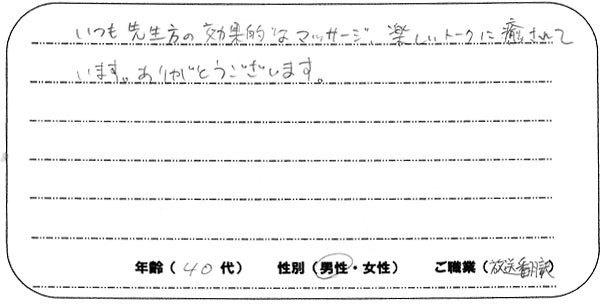 いつも先生方の効果的なマッサージ、楽しいトークに癒されて
います。ありがとうございます。
年齢（４０代） 性別（男性・女性） ご職業（放送翻訳）